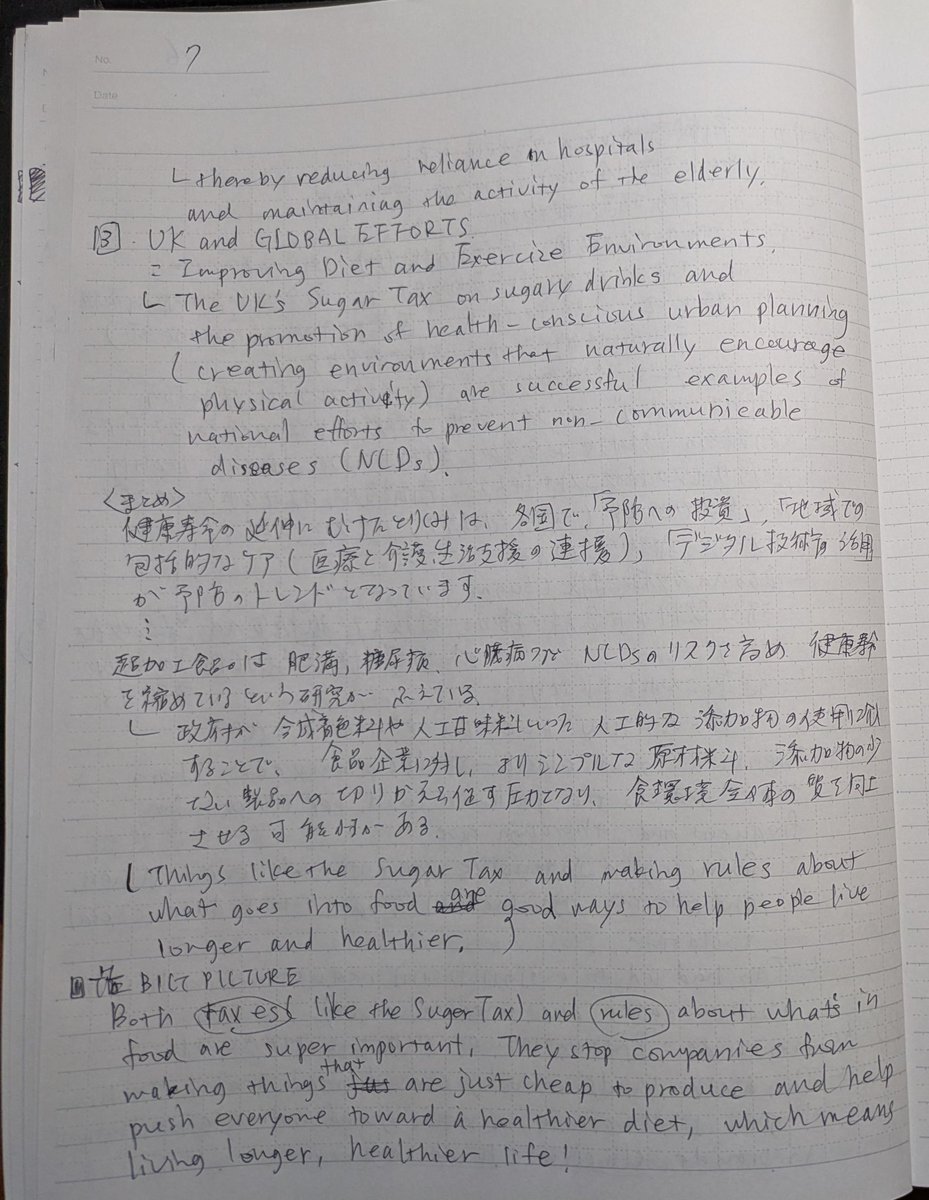 No. 7
Date
└ thereby reducing reliance on hospitals
and maintaining the activity of the elderly.
3. UK and GLOBAL EFFORTS
= Improving Diet and Exercize Environments.
└ The UK's Sugar Tax on sugary drinks and
the promotion of health-conscious urban planning
(creating environments that naturally encourage
physical activity) are successful examples of
national efforts to prevent non-communicable
diseases (NCDs).
<まとめ>
健康寿命の延伸にむけたとりくみは、各国で、「予防への投資」,「地域での
包括的なケア(医療と介護,生活支援の連携)」,「デジタル技術の活用
が予防のトレンドとなっています.
⋮
超加工食品は肥満,糖尿病,心臓病などNCDsのリスクを高め 健康寿命
を縮めているという研究がふえている.
└ 政府が合成着色料や人工甘味料といった人工的な添加物の使用に
することで、食品企業に対し,よりシンプルな原材料,添加物の少
ない製品への切りかえを促す圧力となり,食環境全体の質を向上
させる可能性がある.
(Things like the Sugar Tax and making rules about
what goes into food are good ways to help people live
longer and healthier.)
BIG PICTURE
Both taxes (like the Suger Tax) and rules about what's in
food are super important. They stop companies from
making things that are just cheap to produce and help
push everyone toward a healthier diet, which means
living longer, healthier life!